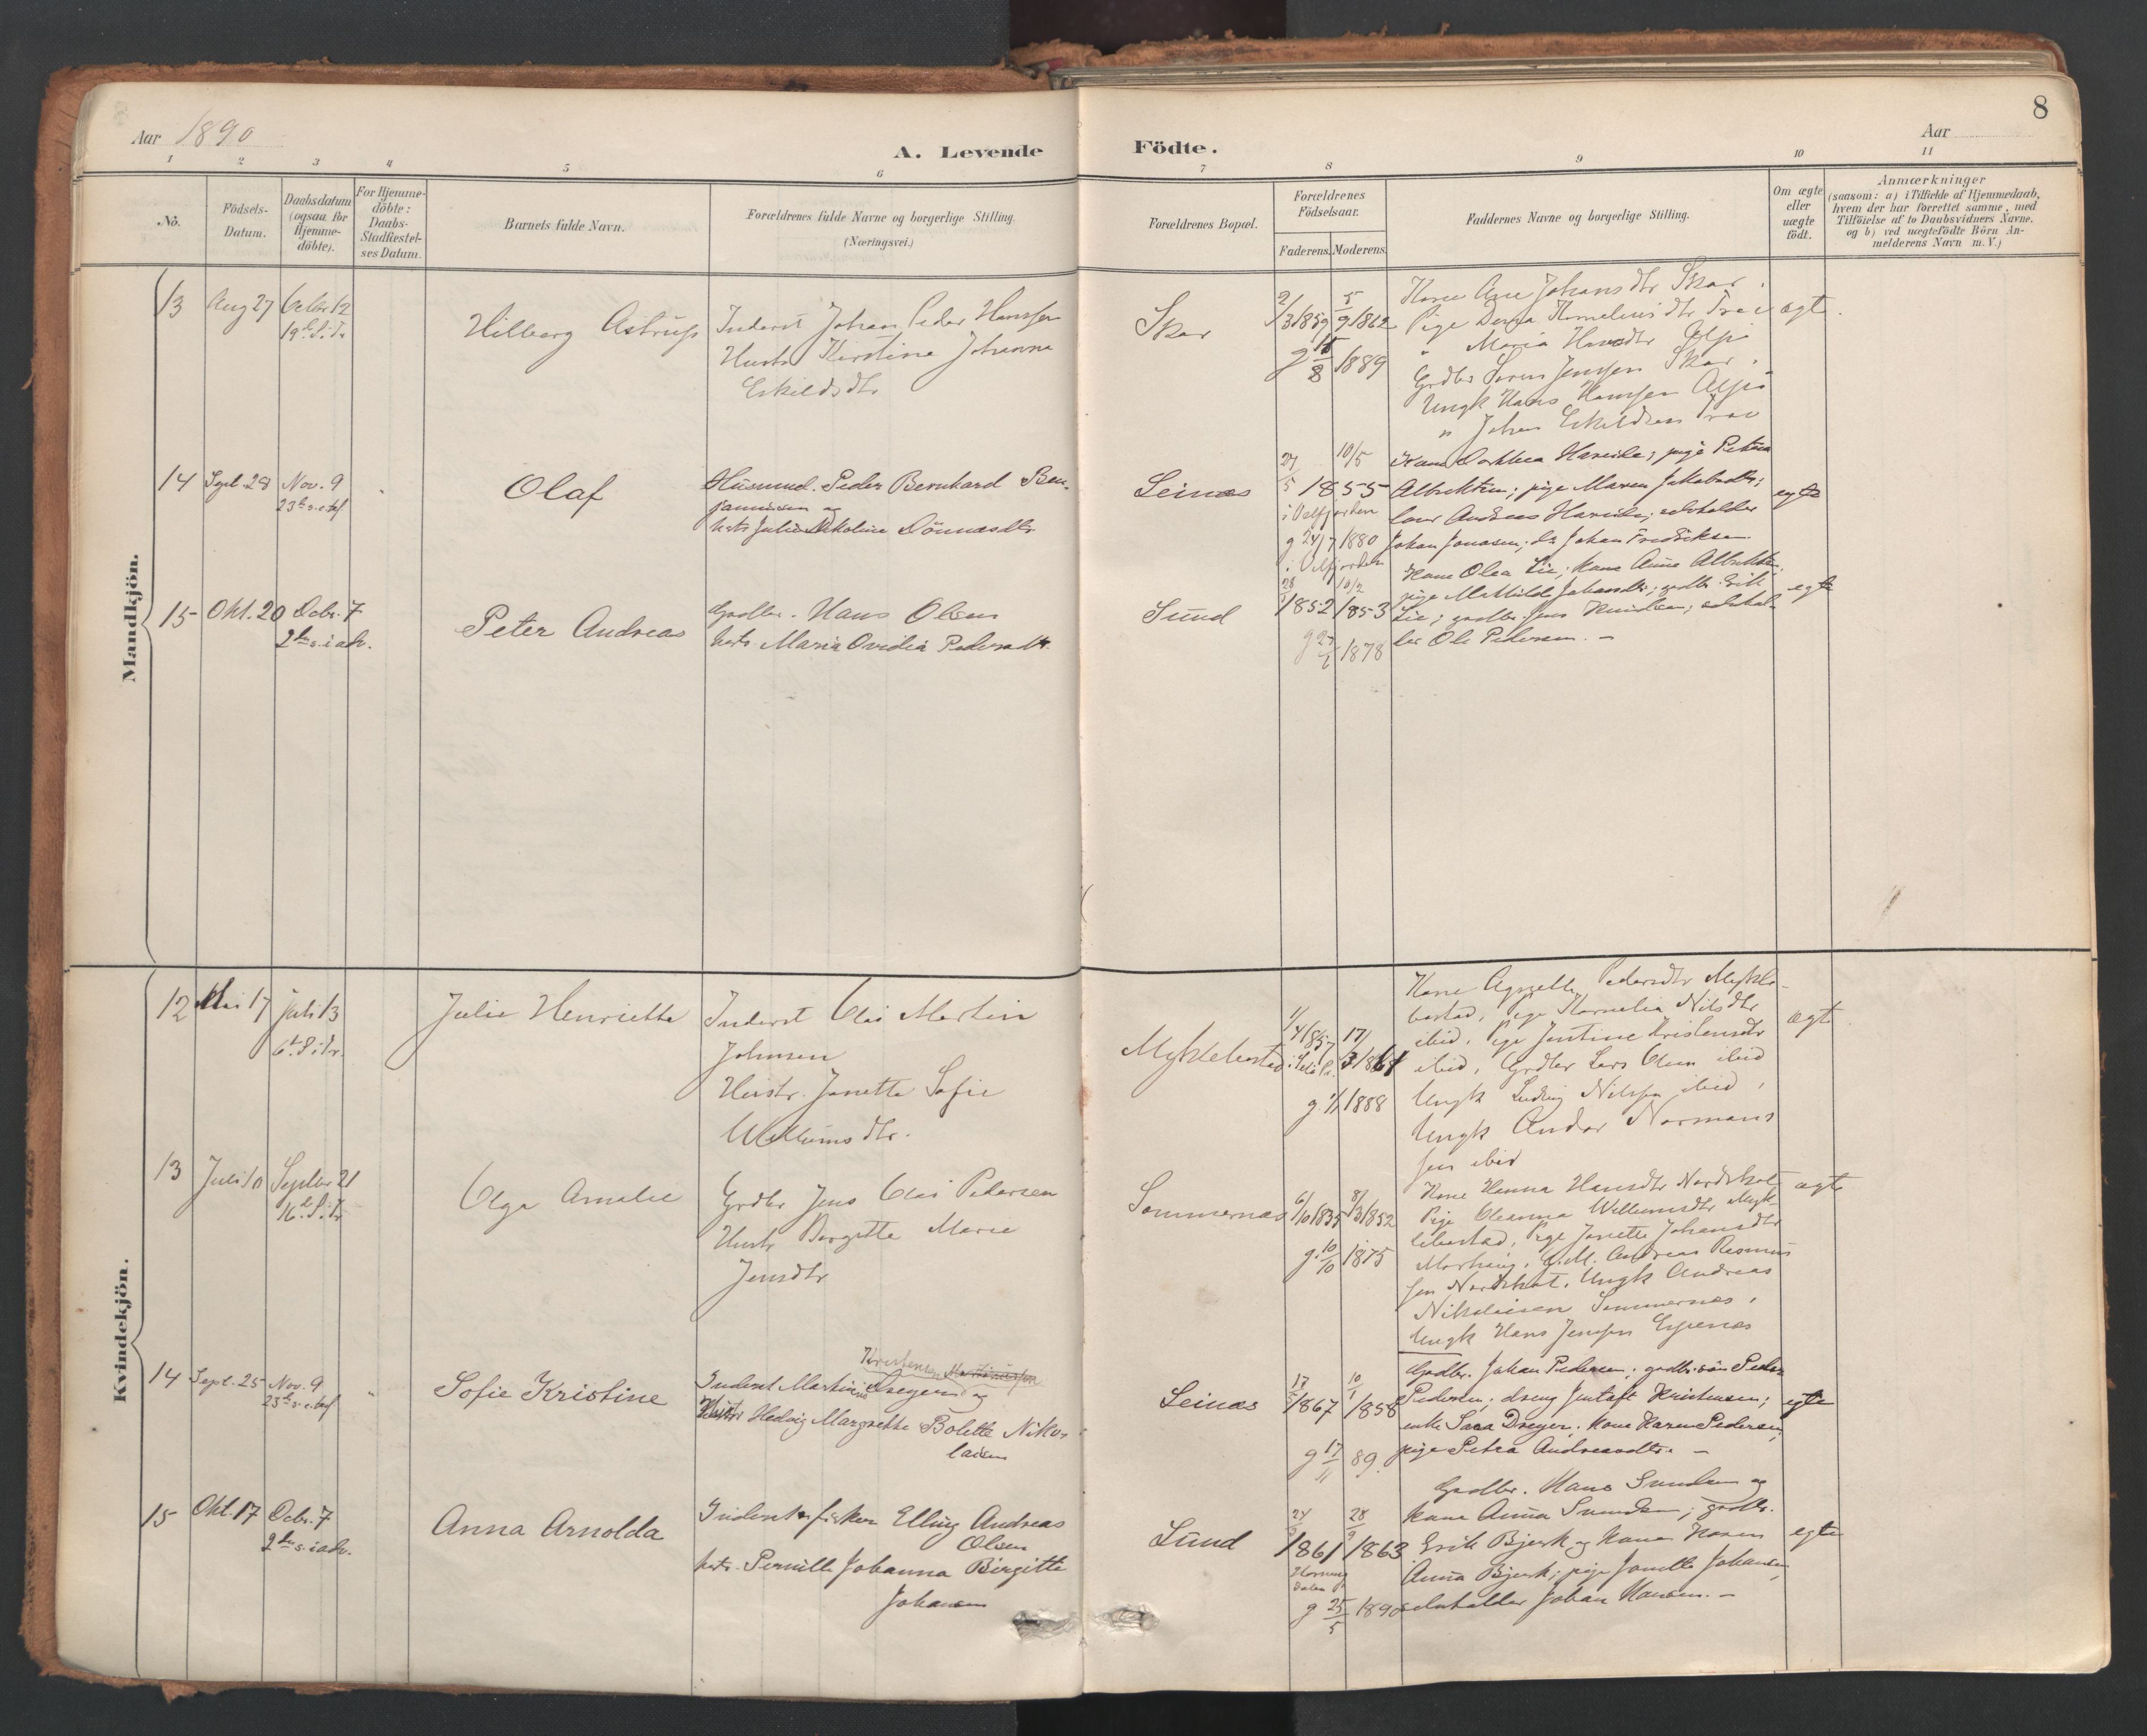 8
Aar 1890
Aar
A. Levende Födte.
1 2 3 4 5 6 7 8 9 10 11
No.
Födsels-
Datum.
Daabsdatum
(ogsaa for
Hjemme-
döbte).
For Hjemme-
döbte:
Daabs-
Stadfæstel-
ses Datum.
Barnets fulde Navn.
Forældrenes fulde Navne og borgerlige Stilling.
(Næringsvei.)
Forældrenes Bopæl.
Forældrenes
Födselsaar.
Faderens. Moderens.
Faddernes Navne og borgerlige Stilling.
Om ægte
eller
uægte
födt.
Anmærkninger
(saasom: a) i Tilfælde af Hjemmedaab,
hvem der har forrettet samme, med
Tilföielse af to Daabsvidners Navne.
og b) ved uægtefödte Börn An-
melderens Navn m.V.)
Mandkjön.
13 Aug 27 Octbr 12
19de S. e. Tr.
Hilberg Astrup
Inderst Johan Peder Hanssen
Hustr Kirstine Johanna
Eskildsdtr
Skar
2/3 1859 5/9 1862
g 18/8 1889
Kone Ane Johansdtr Skar.
Pige Korneliusdtr
" Maria Hansdtr
Grdbr Søren Jenssen Skar.
Ungk Hans Hanssen
" Johan Eskildsen
ægte.
14 Sept. 28 Nov. 9
23de s. e. tref
Olaf
Husmnd. Peder Bernhard Ben-
jaminsen og
hustr Julie Nikoline Dönnesdtr
Leinæs
27/5 10/5
1855
i Velfjorden
g 24/7 1880
i Velfjorden
Kone Dorthea Haveide; pige Petrina
Albriktsen; pige Maren Jakobsdtr;
Andreas Haveide; selvholder
Johan Jonasen; do Johan Fredriksen.
egte
15 Okt. 20 Decbr. 7
2den s. i adv.
Peter Andreas
Grdbr. Hans Olsen
hustr Maria Ovidia Pedersdtr.
Sund
28 10/2
1852 1853
g 1878
Kone Olea Lie; kone Anne Albriktsen;
pige Mathilde Johansdtr; grdbr. Erik
Lie; grdbr. Jens Knudsen; selvhol-
der Ole Pedersen. -
egte
Kvindekjön.
12 Mai 17 Juli 13
6te S. i Tr.
Julie Henriette
Inderst Olai Martin
Johnsen
Hustr. Janette Sofie
Willumsdtr.
Myklebostad
1/4 1857 17/3 1861
g 1/1 1888
Kone Pedersdtr Mykle-
bostad, Pige Kornelia Nilsdtr
ibid, Pige Justine Kristensdtr
ibid, Grdbr Lars Olsen ibid
Ungk Ludvig Nilssen ibid,
Ungk Andor Normans
sen ibid
ægte.
13 Juli 10 Septbr 21
16de S. i Tr
Olga Amalie
Grdbr Jens Olai Pedersen
Hustr Bergitte Marie
Jensdtr
Sommernæs
6/10 1835 8/3 1852
g. 10/10 1875
Kone Hanna Hansdtr Nordskot
Pige Oleanna Willumsdtr Myk-
lebostad, Pige Janette Johansdtr
Andreas Rasmus
sen Nordskot. Ungk Andreas
Nikolaisen Sommernæs,
Ungk Hans Jenssen Espenæs
ægte
14 Sept. 25 Nov. 9
23de s. e. tref
"
Sofie Kristine
Kristensen
Inderst Martinius Dreyer og
Hustr Hedvig Margrethe Bolette Niko-
laisen
Leinæs
17/5 1867 10/1 1858
g 17/11 89.
Grdbr. Johan Pedersen; grdbr.sön Peder
Pedersen; dreng Jentoft Kristensen;
enke Sara Dreyer; kone Karen Pedersen;
pige Petra Andreasdtr. -
egte
15 Okt. 17 Decbr. 7
2den s. i adv.
Anna Arnolda
Inderst & fisker Elling Andreas
Olsen
hustr. Pernille Johanna Birgitte
Johansen
Lund
24/9 28/9
1861 1863
g 25/5 1890
Grdbr. Hans Svendsen og
kone Anna Svendsen; grdbr.
Erik Bjerk og kone Karen
Anna Bjerk; pige Janette Johansen,
selvholder Johan Hansen. -
egte